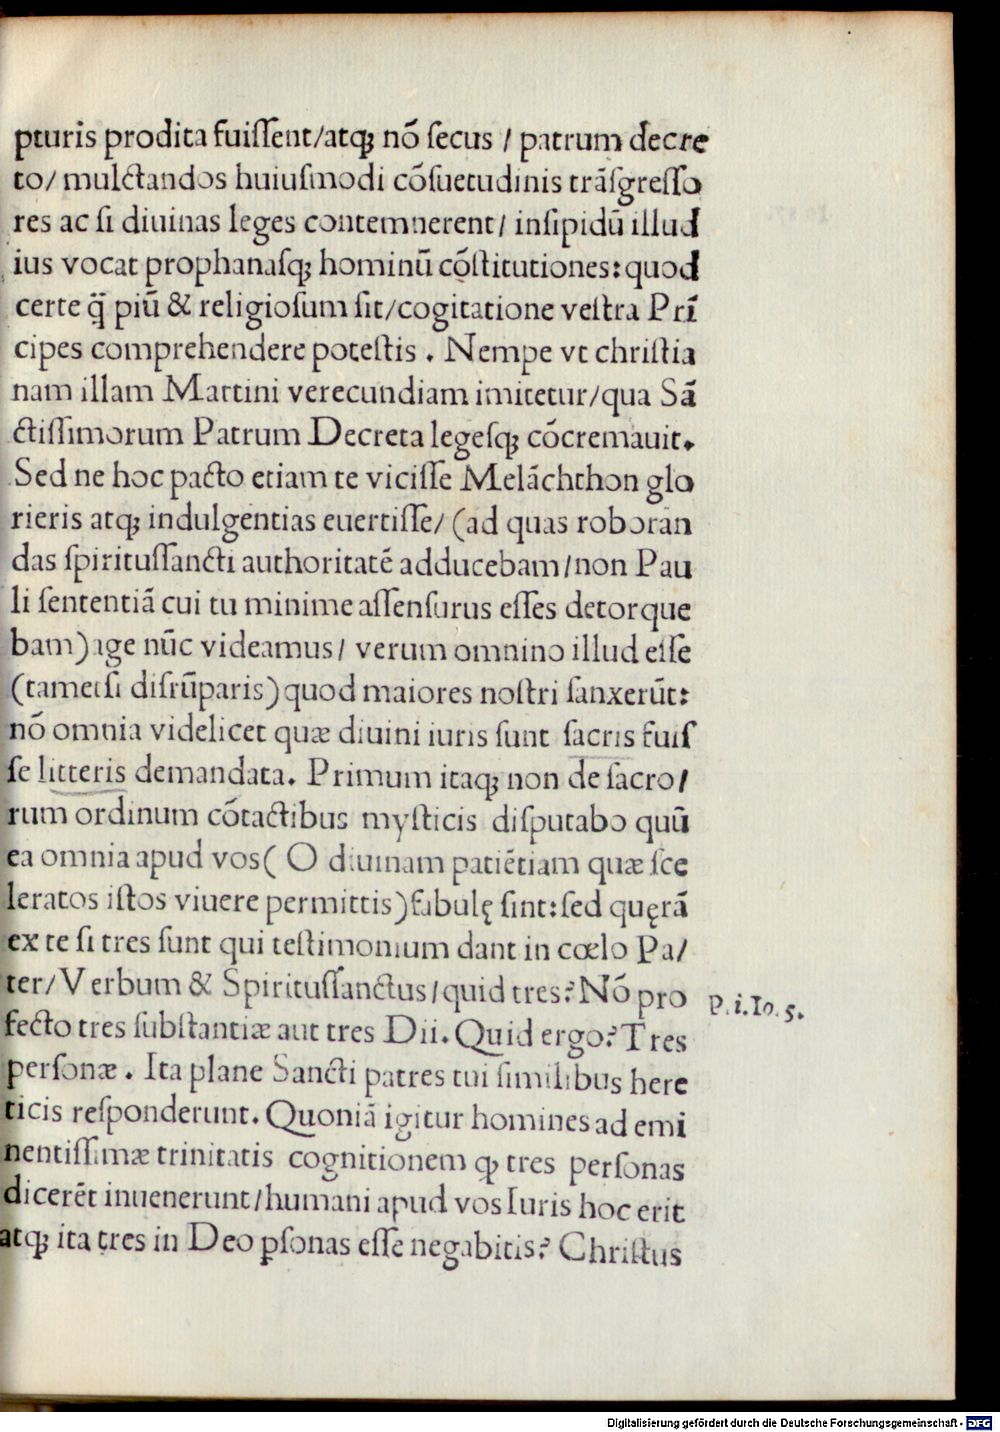 pturis prodita fuiſſent/atqꝫ nõ ſecus / patrum decre
to/ mulctandos huiuſmodi cõſuetudinis trãſgreſſo
res ac ſi diuinas leges contemnerent/ inſipidũ illud
ius vocat prophanaſqꝫ hominũ cõſtitutiones: quod
certe q̃ piũ & religioſum ſit/cogitatione veſtra Prĩ
cipes comprehendere poteſtis . Nempe vt chriſtia
nam illam Martini verecundiam imitetur/qua Sã
ctiſſimorum Patrum Decreta legeſqꝫ cõcremauit.
Sed ne hoc pacto etiam te viciſſe Melãchthon glo
rieris atqꝫ indulgentias euertiſſe/ (ad quas roboran
das ſpirituſſancti authoritatẽ adducebam/non Pau
li ſententiã cui tu minime aſſenſurus eſſes detorque
bam) age nũc videamus/ verum omnino illud eſſe
(tametſi diſrũparis) quod maiores noſtri ſanxerũt:
nõ omnia videlicet quæ diuini iuris ſunt ſacris fuiſ
ſe litteris demandata. Primum itaqꝫ non de ſacro/
rum ordinum cõtactibus myſticis diſputabo quũ
ea omnia apud vos( O diuinam patiẽtiam quæ ſce
leratos iſtos viuere permittis) fabulę ſint: ſed quęrã
ex te ſi tres ſunt qui teſtimonium dant in cœlo Pa/
ter/Verbum & Spirituſſanctus/quid tres? Nõ pro
fecto tres ſubſtantiæ aut tres Dii. Quid ergo? Tres
perſonæ . Ita plane Sancti patres tui ſimilibus here
ticis reſponderunt. Quoniã igitur homines ad emi
nentiſſimæ trinitatis cognitionem ꝙ tres perſonas
dicerẽt inuenerunt/humani apud vos Iuris hoc erit
atqꝫ ita tres in Deo ꝑſonas eſſe negabitis? Chriſtus
P.i.Io.5.
Digitalisierung gefördert durch die Deutsche Forschungsgemeinschaft - DFG